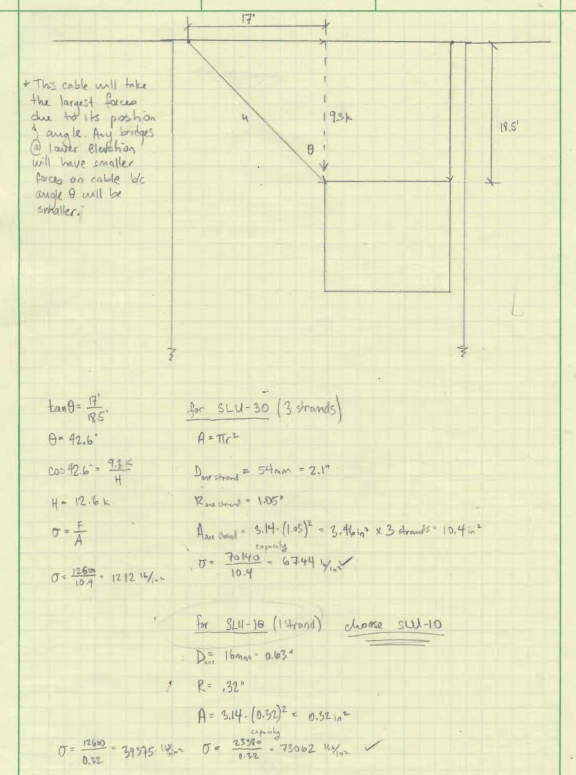 17'
* This cable will take
the largest forces
due to its position
& angle. Any bridges
@ lower elevation
will have smaller
forces on cable b/c
angle θ will be
smaller.
H
θ
9.3k
18.5'
tanθ = 17' / 18.5'
θ = 42.6°
cos 42.6° = 9.3 K / H
H = 12.6 k
σ = F / A
σ = 12600 / 10.4 = 1212 lb/in²
for SLU-30 (3 strands)
A = πr²
D one strand = 54mm = 2.1"
R one strand = 1.05"
A one strand = 3.14 · (1.05)² = 3.46 in² x 3 strands = 10.4 in²
capacity
σ = 70140 / 10.4 = 6744 lb/in² ✓
for SLU-10 (1 strand) choose SLU-10
D one = 16mm = 0.63"
R = .32"
A = 3.14 · (0.32)² = 0.32 in²
capacity
σ = 12600 / 0.32 = 39375 lb/in² σ = 23380 / 0.32 = 73062 lb/in² ✓